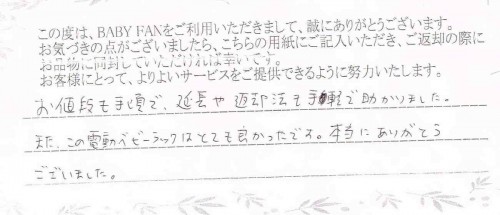 この度は、BABY FANをご利用いただきまして、誠にありがとうございます。
お気づきの点がございましたら、こちらの用紙にご記入いただき、ご返却の際に
お品物に同封していただければ幸いです。
お客様にとって、よりよいサービスをご提供できるように努力いたします。
お値段も手頃で、延長や返却法も手軽で助かりました。
また、この電動ベビーラックはとても良かったです。本当にありがとう
ございました。